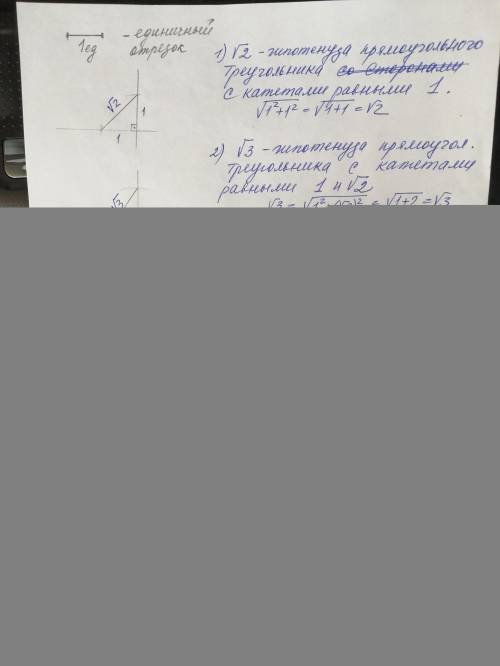 1ед
- единичный
отрезок
√2
1
1
√3
1) √2 - гипотенуза прямоугольного
треугольника со сторонами
с катетами равными 1.
√1²+1² = √1+1 = √2
2) √3 - гипотенуза прямоугол.
треугольника с катетами
равными 1 и √2
√3 = √1²+ = √1+2 = √3